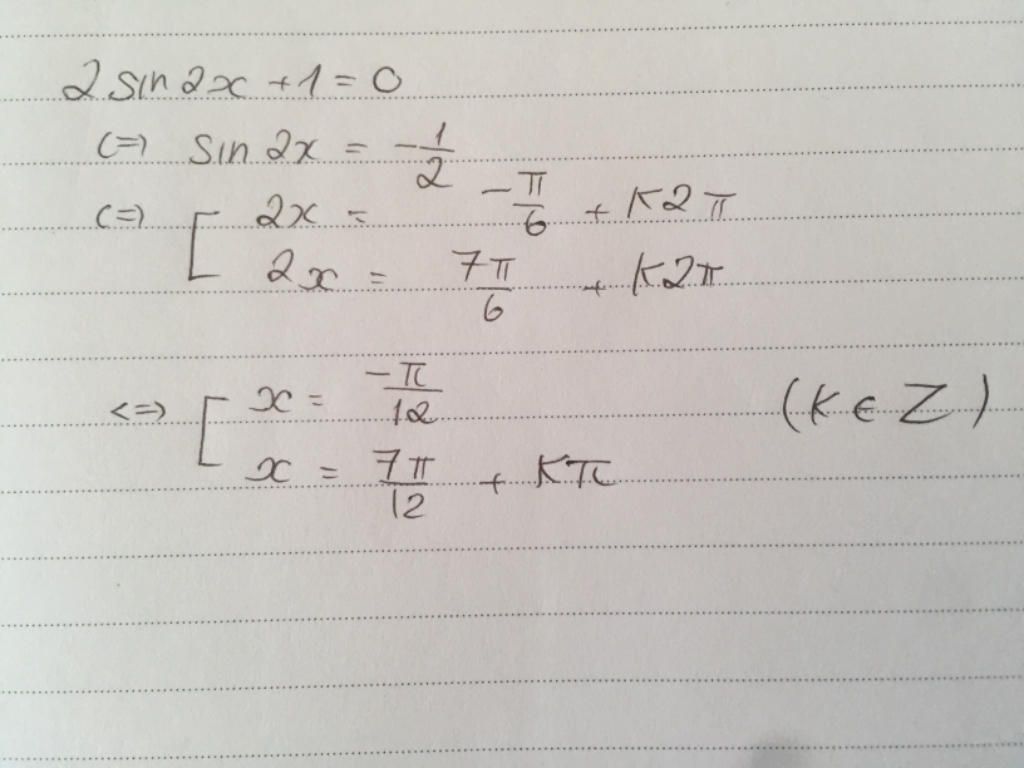 2 sin 2x + 1 = 0
<=> sin 2x = -1/2
<=> [ 2x = -π/6 + K2π
2x = 7π/6 + K2π
<=> [ x = -π/12 (K ∈ Z)
x = 7π/12 + Kπ